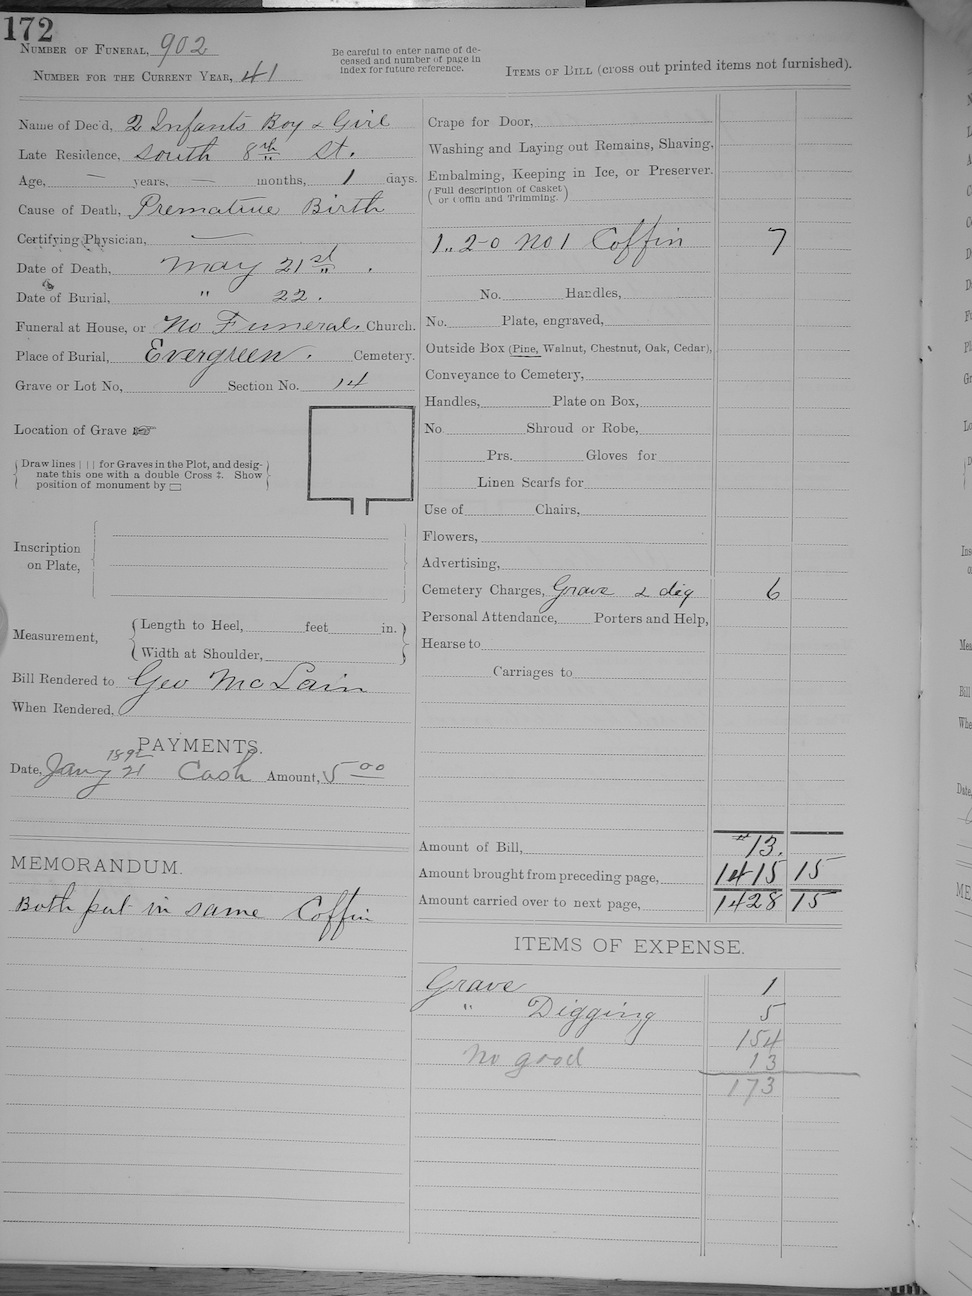 172
Number of Funeral, 902
Number for the Current Year, 41
Be careful to enter name of de-
ceased and number of page in
index for future reference.
Items of Bill (cross out printed items not furnished).
Name of Dec'd, 2 Infants Boy & Girl
Late Residence, South 8th St.
Age, — years, — months, 1 days.
Cause of Death, Premature Birth
Certifying Physician, —
Date of Death, May 21st
Date of Burial, " 22.
Funeral at House, or No Funeral. Church.
Place of Burial, Evergreen. Cemetery.
Grave or Lot No, Section No. 14
Location of Grave ☞
Draw lines | | | for Graves in the Plot, and desig-
nate this one with a double Cross ‡. Show
position of monument by ▭
Inscription
on Plate,
Measurement,
Length to Heel, feet in.
Width at Shoulder,
Bill Rendered to Geo McLain
When Rendered,
PAYMENTS.
1892
Date, Jany 21 Cash Amount, 5 00
MEMORANDUM.
Both put in same Coffin
Crape for Door,
Washing and Laying out Remains, Shaving,
Embalming, Keeping in Ice, or Preserver.
(Full description of Casket
or Coffin and Trimming.)
1,, 2-0 No 1 Coffin 7
No. Handles,
No. Plate, engraved,
Outside Box (Pine, Walnut, Chestnut, Oak, Cedar),
Conveyance to Cemetery,
Handles, Plate on Box,
No. Shroud or Robe,
Prs. Gloves for
Linen Scarfs for
Use of Chairs,
Flowers,
Advertising,
Cemetery Charges, Grave & dig 6
Personal Attendance, Porters and Help,
Hearse to
Carriages to
Amount of Bill, 13.
Amount brought from preceding page, 1415 15
Amount carried over to next page, 1428 15
ITEMS OF EXPENSE.
Grave 1
" Digging 5
154
No good 13
173